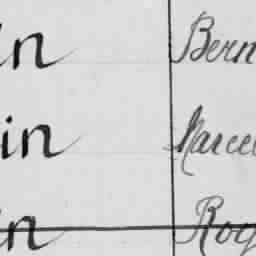 in Bern
in Marcel
in Rog